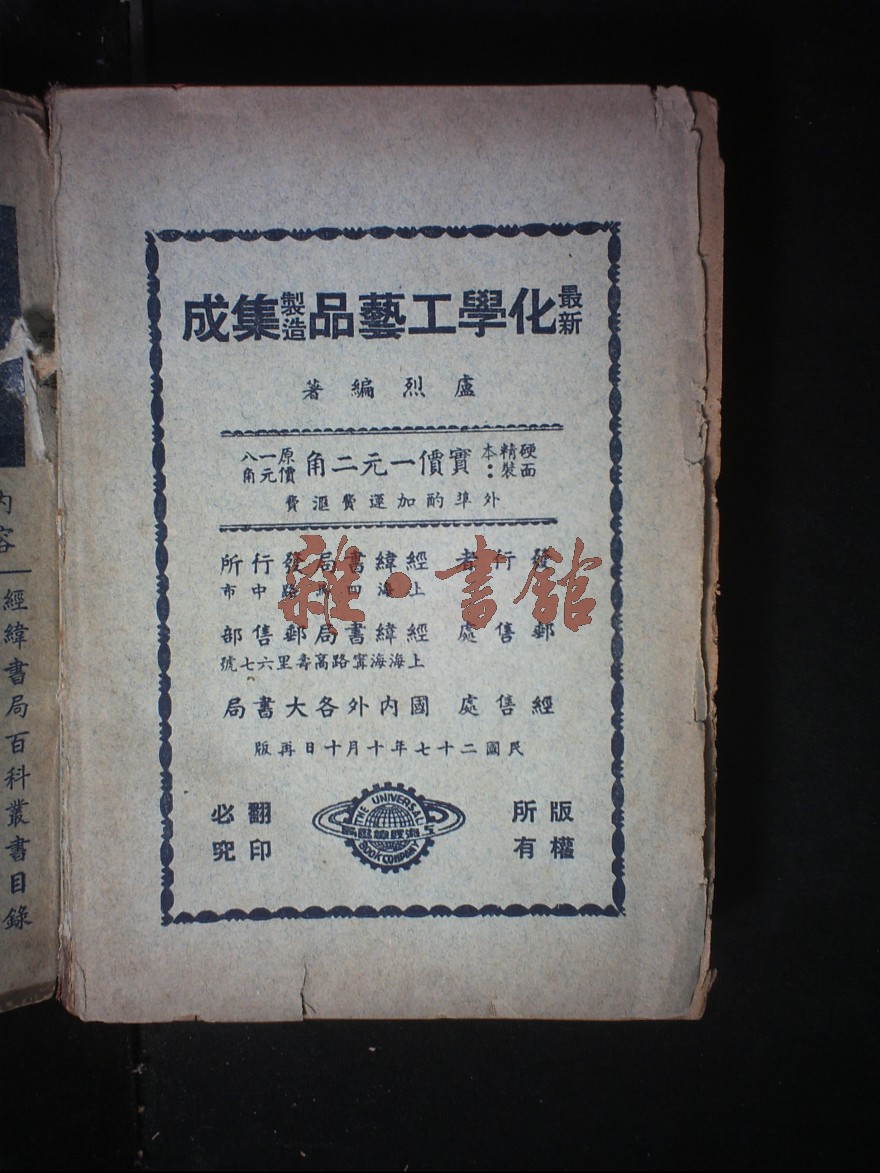 最新化學工藝品製造集成
盧烈編著
硬面精裝本：實價一元二角 原價一元八角
外埠酌加運費滙費
發行者 經緯書局發行所
上海四馬路中市
郵售處 經緯書局郵售部
上海海寗路高壽里六七號
經售處 國內外各大書局
民國二十七年十月十日再版
版權所有
翻印必究
THE UNIVERSAL
BOOK COMPANY
雜·書館
內容 — 經緯書局百科叢書目錄